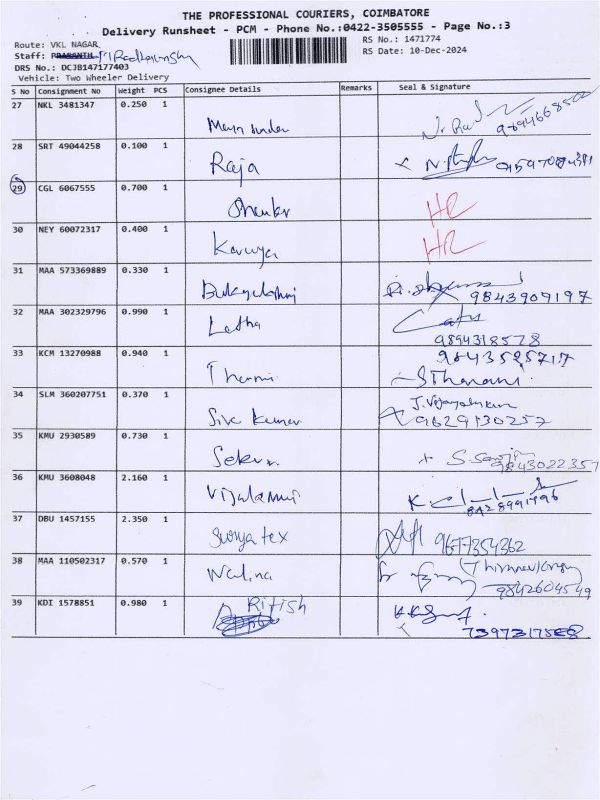 THE PROFESSIONAL COURIERS, COIMBATORE
Delivery Runsheet - PCM - Phone No.:0422-3505555 - Page No.:3
Route: VKL NAGAR
RS No.: 1471774
Staff:
RS Date: 10-Dec-2024
DRS No.: DCJB147177403
Vehicle: Two Wheeler Delivery
S No Consignment No Weight PCS Consignee Details Remarks Seal & Signature
27 NKL 3481347 0.250 1
28 SRT 49044258 0.100 1 Raja
29 CGL 6067555 0.700 1 HR
30 NEY 60072317 0.400 1 HR
31 MAA 573369889 0.330 1 9843909197
32 MAA 302329796 0.990 1 Latha
9894318578
33 KCM 13270988 0.940 1 9843525717
34 SLM 360207751 0.370 1 Siva Kumar
9629130257
35 KMU 2930589 0.730 1 9843022357
36 KMU 3608048 2.160 1
8428991796
37 DBU 1457155 2.350 1 Surya tex 9677354362
38 MAA 110502317 0.570 1 9842604549
39 KDI 1578851 0.980 1 Ritish